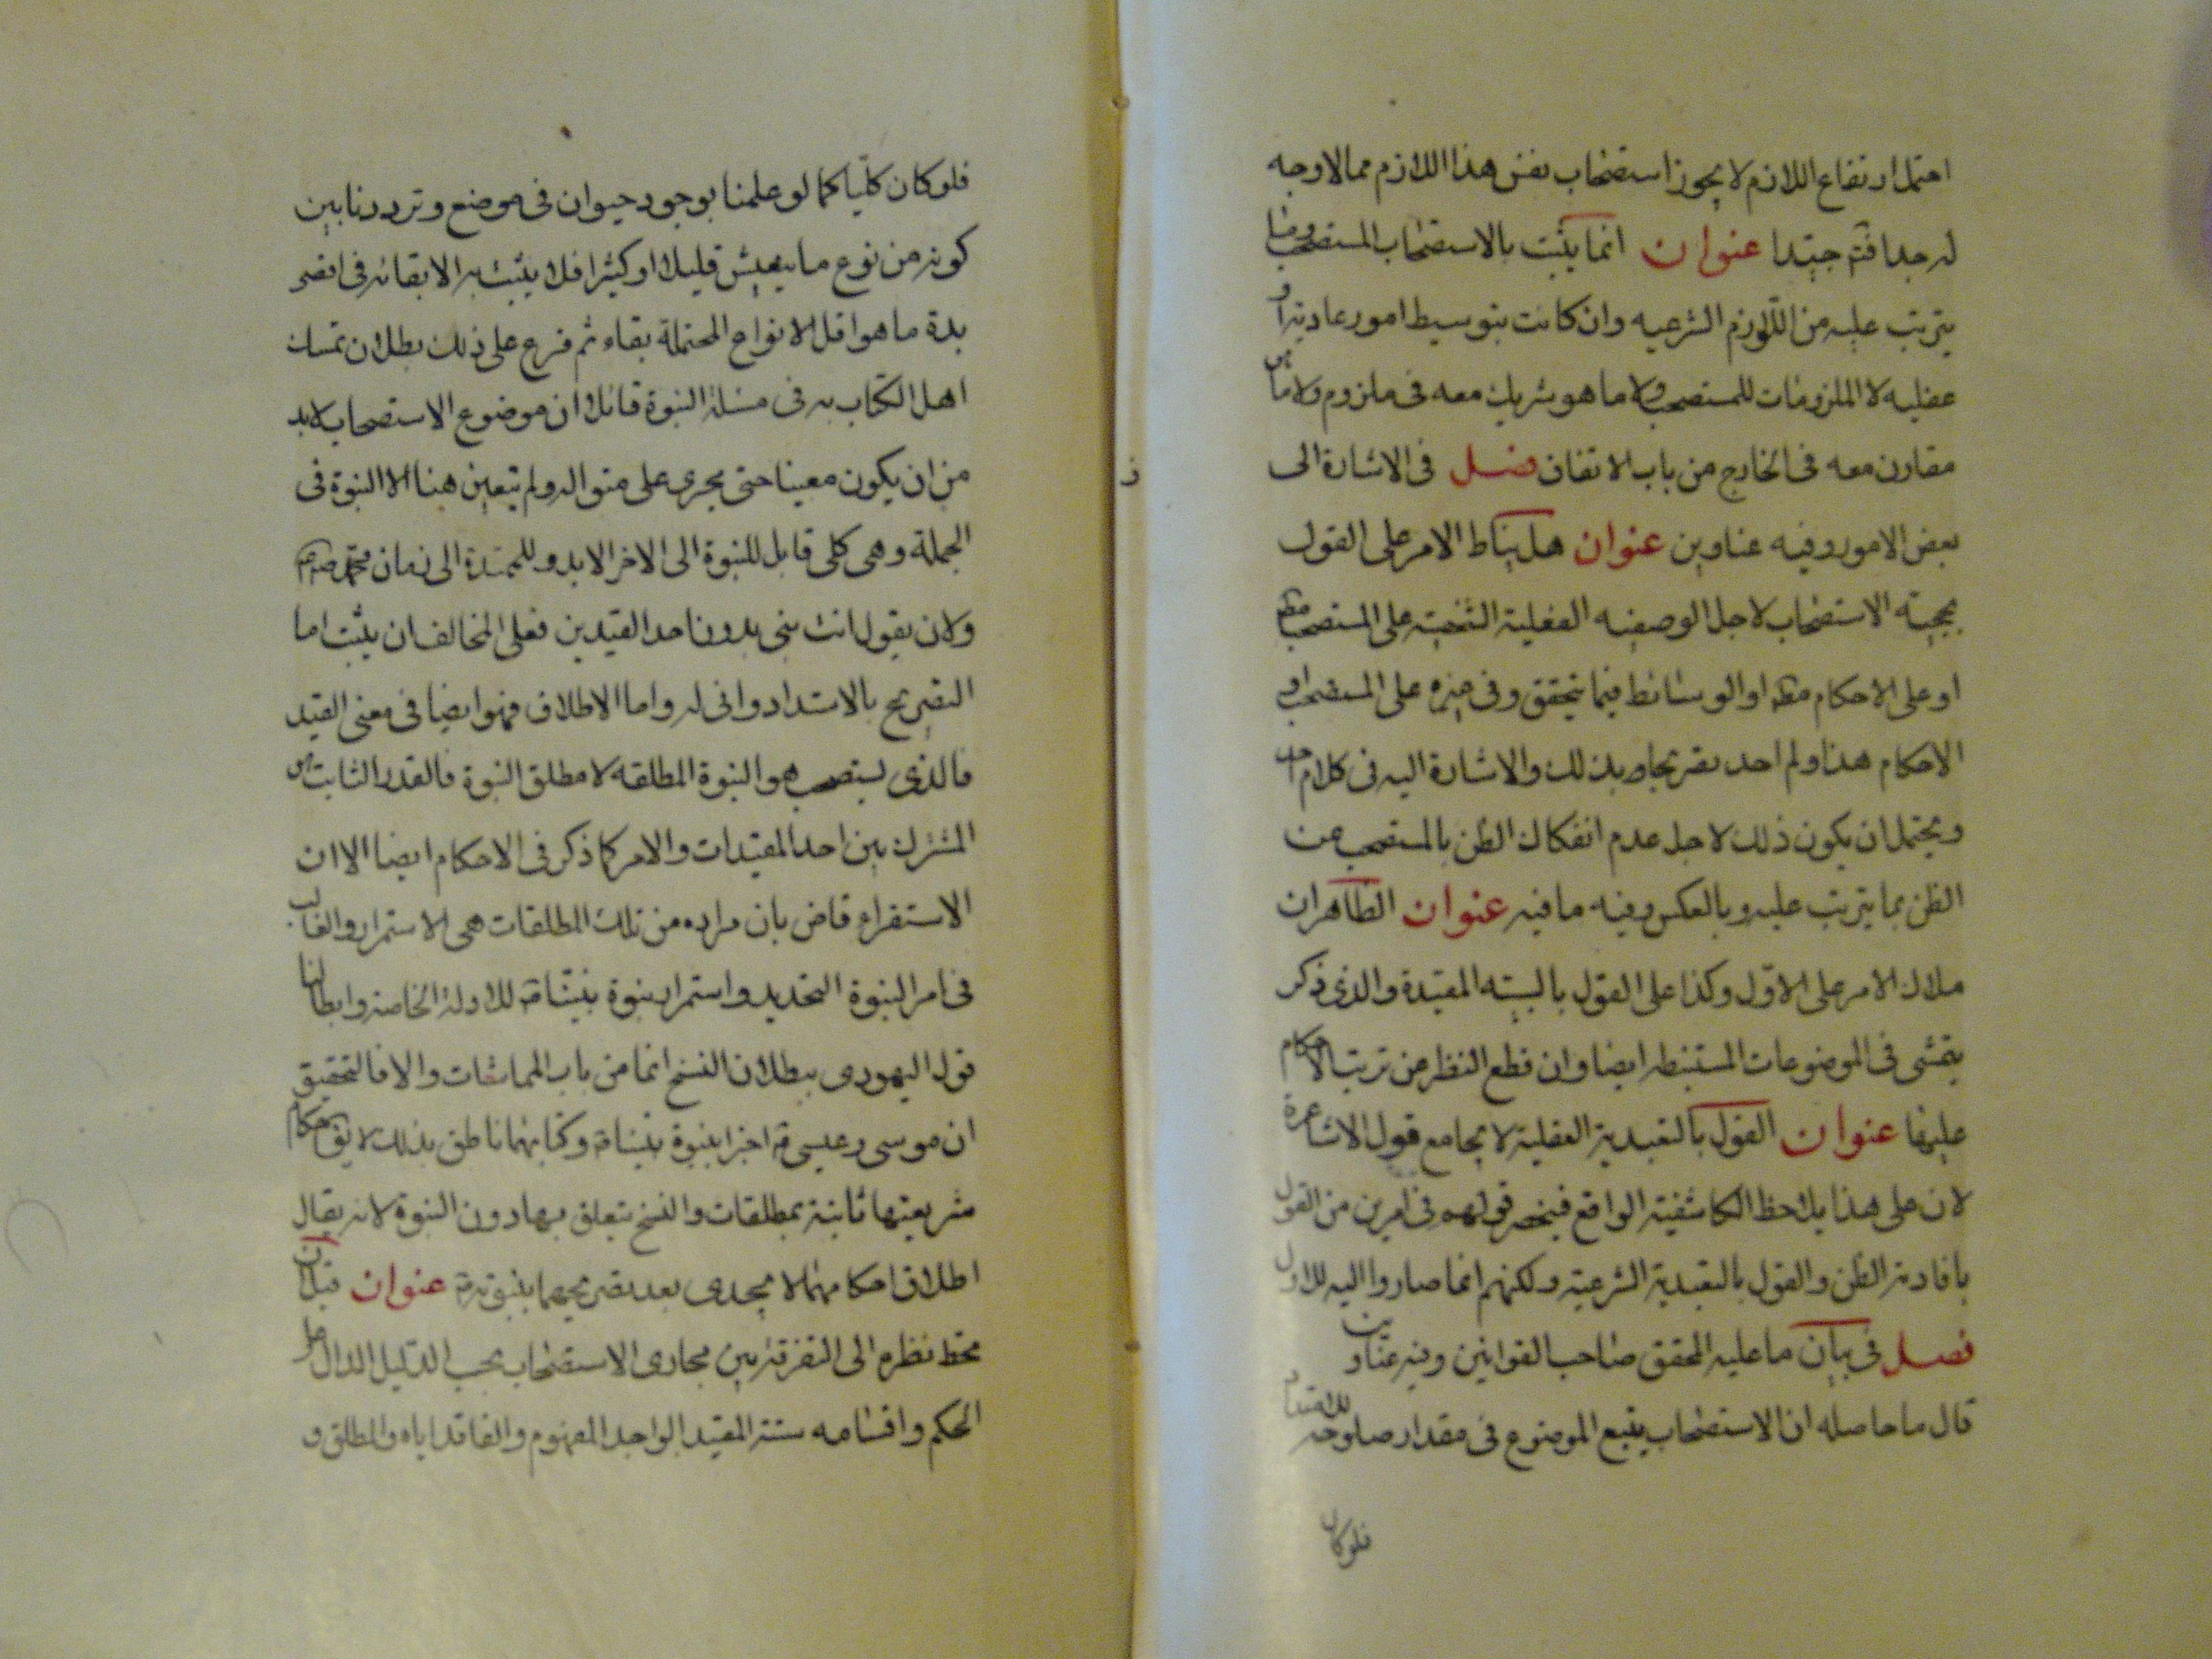 احتمل ارتفاع اللازم لا يجوز استصحاب نفس هذا اللازم مما لا وجه
له جدا فتم جيدا عنوان انما يثبت بالاستصحاب المستصحب وما
يترتب عليه من اللوازم الشرعيه وان كانت بتوسيط امور عادية او
عقليه لا الملزومات للمستصحب ولا ما هو شريك معه في ملزوم ولا ما هو
مقارن معه في الخارج من باب الاتفاق فصل في الاشارة الى
بعض الامور وفيه عناوين عنوان هل يناط الامر على القول
بحجية الاستصحاب لاجل الوصفيه العقلية الشخصية على المستصحب
او على الاحكام او الوسائط فيما يتحقق وفي غيره على المستصحب او
الاحكام هذا ولم اجد تصريحا بذلك والاشارة اليه في كلام احد
ويحتمل ان يكون ذلك لاجل عدم انفكاك الظن بالمستصحب عن
الظن بما يترتب عليه وبالعكس وفيه ما فيه عنوان الظاهر ان
ملاك الامر على الاول وكذا على القول بالسببيه المقيدة والذي ذكر
يتمشى في الموضوعات المستنبطه ايضا وان قطع النظر عن ترتب الاحكام
عليها عنوان القول بالتعبدية العقلية لا يجامع قول الاشاعرة
لان على هذا يلاحظ الكاشفية الواقع فينحصر قولهم في امرين من القول
بافادته الظن والقول بالتعبدية الشرعية ولكنهم انما صاروا اليه للاول
فصل في بيان ما عليه المحقق صاحب القوانين وفيه عناوين
قال ما حاصله ان الاستصحاب يتبع الموضوع في مقدار صلوحه للامتداد
فلو كان
فلو كان كليا كما لو علمنا بوجود حيوان في موضع وترددنا بين
كونه من نوع ما يعيش قليلا او كثيرا فلا يثبت به الا بقائه في اقصر
مدة ما هو اقل الانواع المحتملة بقاء ثم فرع على ذلك بطلان تمسك
اهل الكتاب به في مسئلة النبوة قائلا ان موضوع الاستصحاب لا بد
من ان يكون معينا حتى يجري على منواله ولم يتعين هنا الا النبوة في
الجملة وهي كلي قابل للنبوة الى الاخر الابد وللممتدة الى زمان محمد ص
ولان يقول انت نبي بدون احد القيدين فعلى المخالف ان يثبت اما
التصريح بالامتداد وانى له واما الاطلاق فهو ايضا في معنى القيد
فالذي يستصحب هو النبوة المطلقه لا مطلق النبوة فالقدر الثابت هو
المشترك بين احد المقيدات والامر كما ذكر في الاحكام ايضا الا ان
الاستقراء قاض بان مراده من تلك المطلقات هي الاستمرار والغالب
في امر النبوة التحديد واستمرار نبوة نبينا للادلة الخاصة وابطالنا
قول اليهودي ببطلان النسخ انما من باب المماشات والا فالتحقيق
ان موسى وعيسى اخبرا بنبوة نبينا وكتابهما ناطق بذلك لا يق احكام
شريعتها ثابتة بمطلقات والنسخ يتعلق بها دون النبوة لانه يقال
اطلاق احكامهما لا يجدي بعد تصريحهما بنبوته عنوان قيل ان
محط نظره الى التفرقة بين مجاري الاستصحاب بحسب الدليل الدال على
الحكم واقسامه ستة المقيد الواجد المفهوم والفاقد اياه والمطلق و